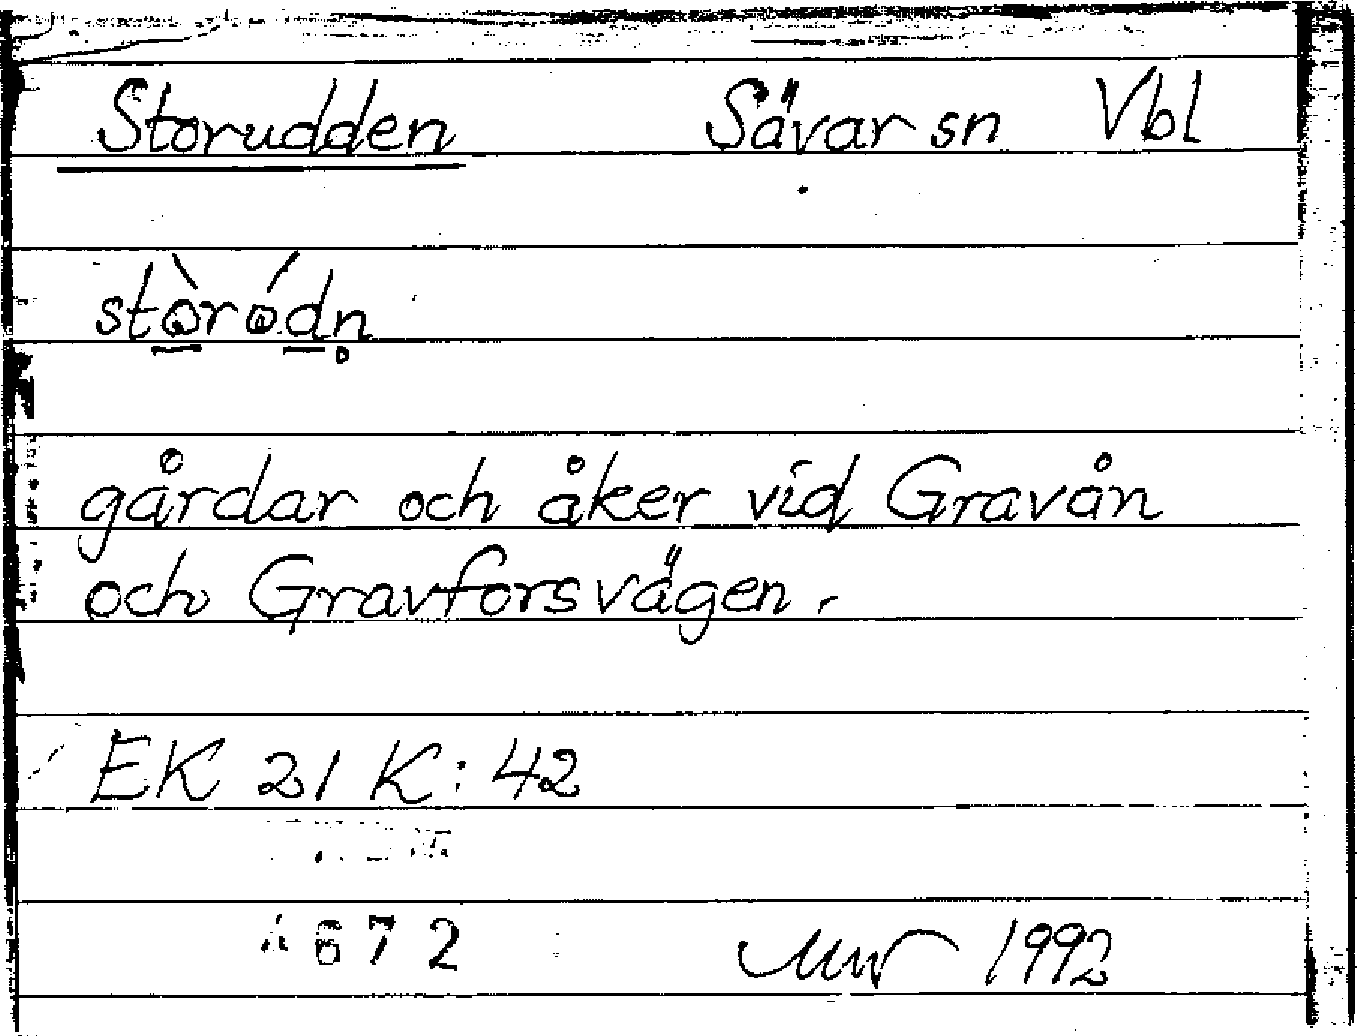 Storudden Sävar sn Vbl
stòròdn̥
gårdar och åker vid Gravån
och Gravforsvägen.
EK 21 K: 42
672
1992